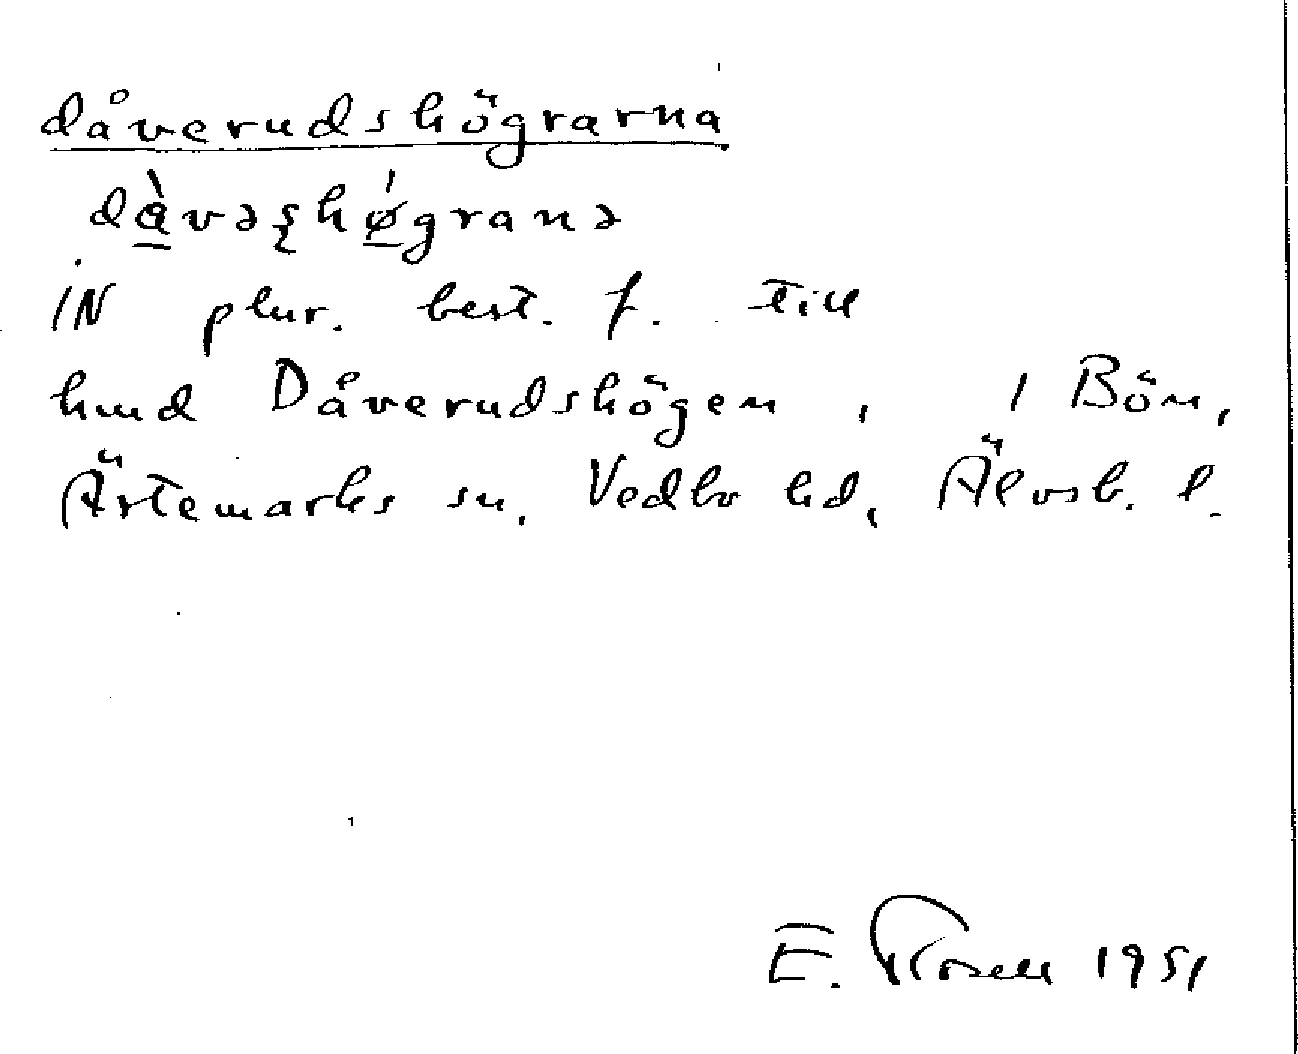 dåverudshögrarna
dàvəʂhǿgranə
IN plur. best. f. till
hmd Dåverudshögen, i Bön,
Ärtemarks sn, Vedbo hd, Älvsb. l.
E. Rosell 1951